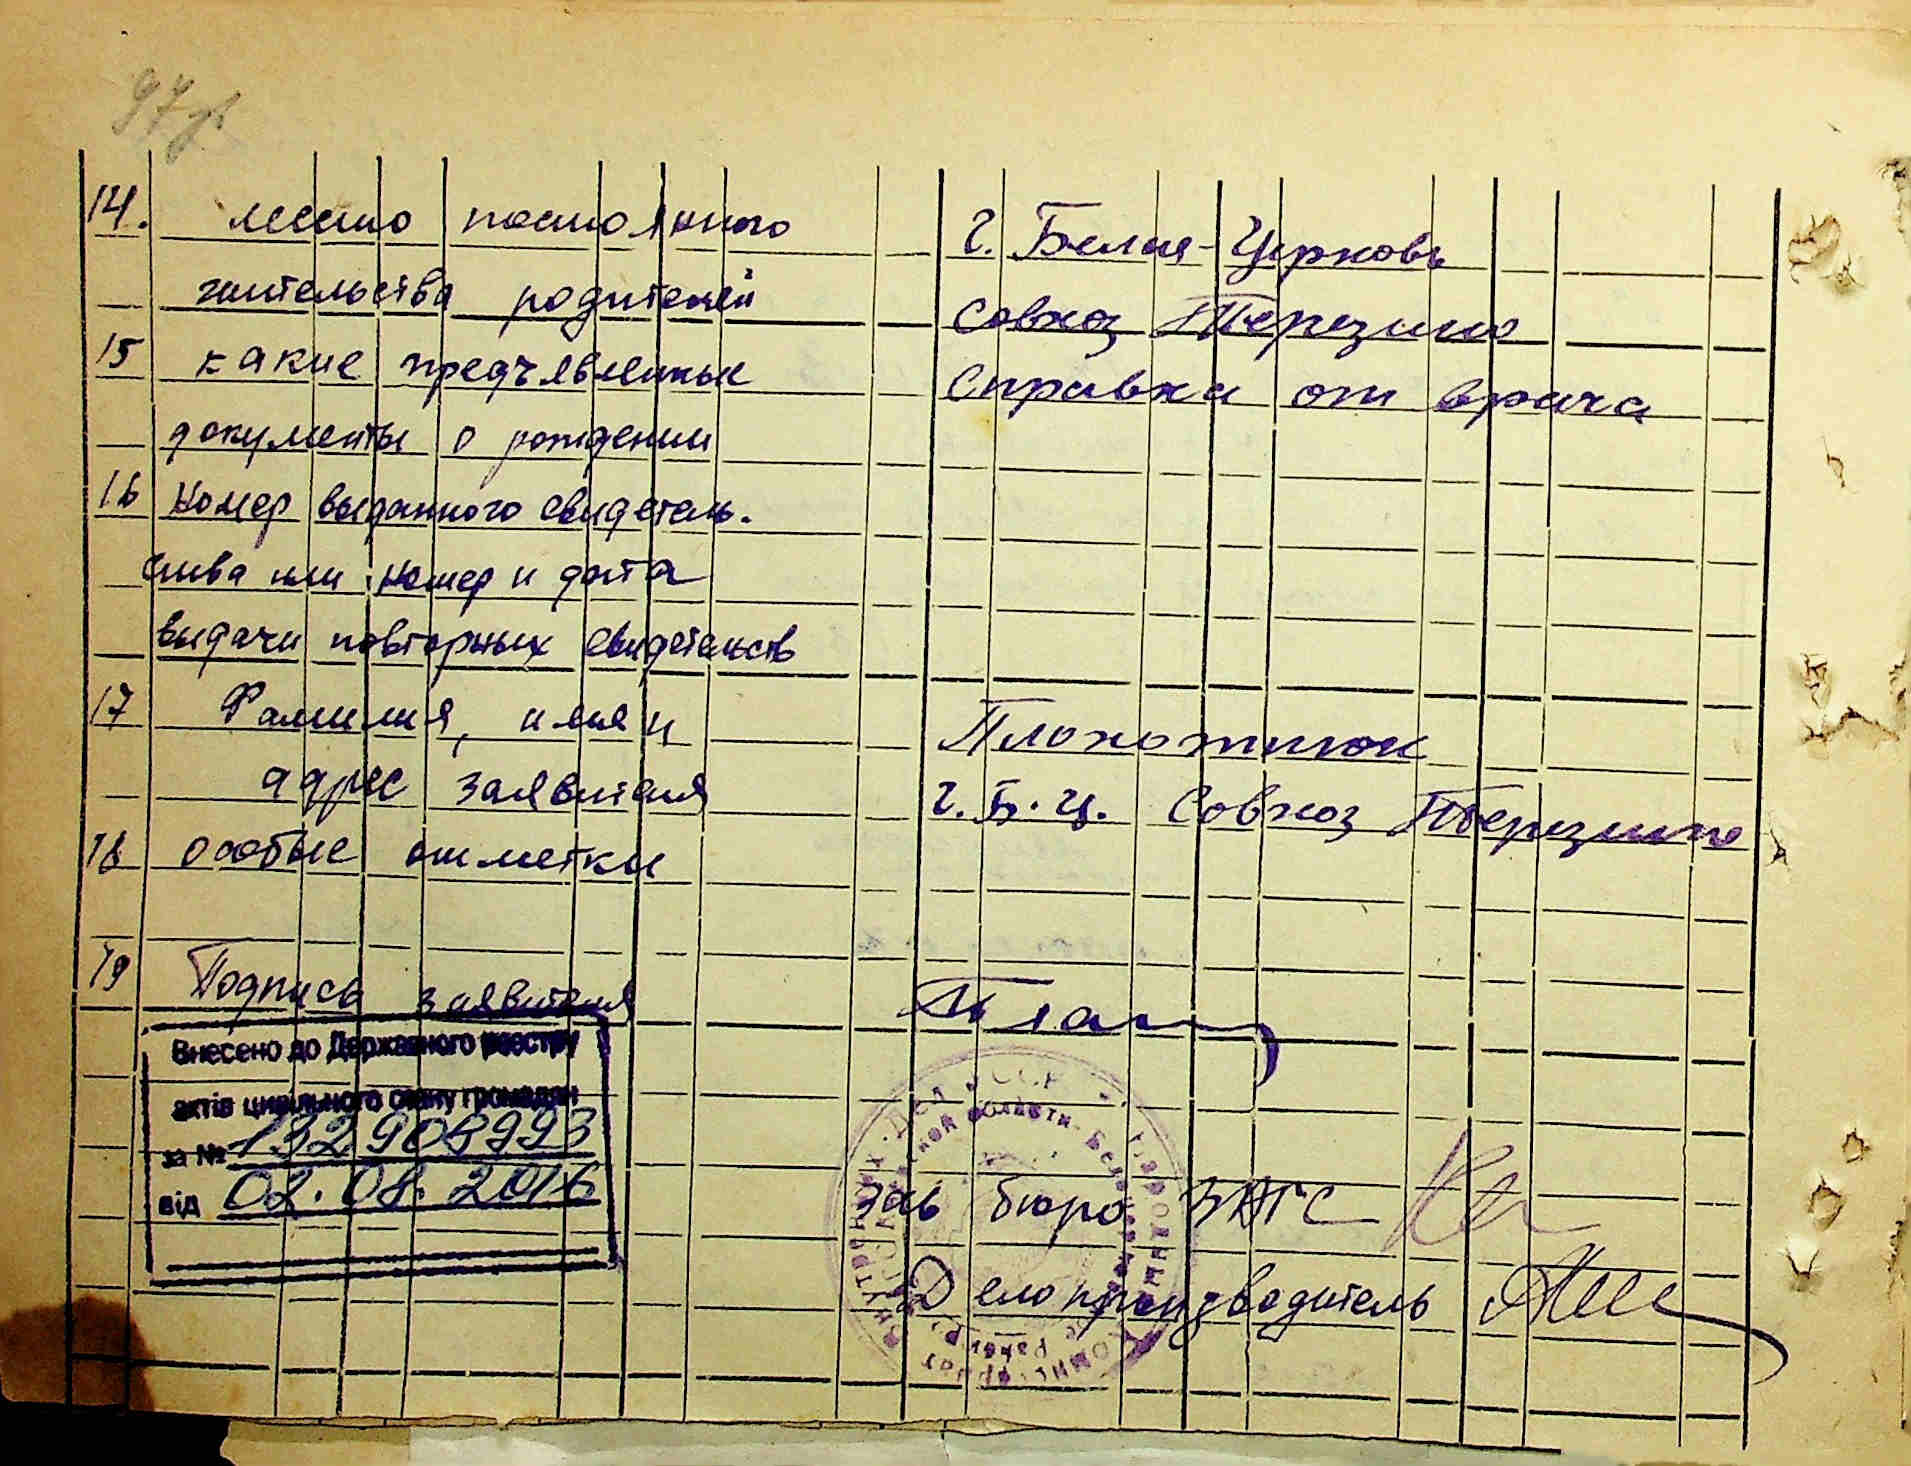 14. место постоянного г. Белая-Церковь
жительства родителей совхоз Терезино
15 какие предъявленные справка от врача
документы о рождении
16 Номер выданного свидетель-
ства или номер и дата
выдачи повторных свидетельств
17 Фамилия, имя и Плохотнюк
адрес заявителя г. Б. Ц. Совхоз Терезино
18 особые отметки
19 Подпись заявителя
Внесено до Державного реєстру
актів цивільного стану громадян
за №
від 02.08.2016
Зав бюро ЗАГС
Делопроизводитель